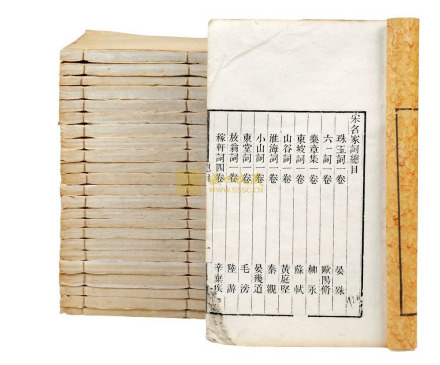 宋名家詞總目
珠玉詞一卷 晏殊
六一詞一卷 歐陽脩
樂章集一卷 柳永
東坡詞一卷 蘇軾
山谷詞一卷 黃庭堅
淮海詞一卷 秦觀
小山詞一卷 晏幾道
東堂詞一卷 毛滂
放翁詞一卷 陸游
稼軒詞四卷 辛棄疾